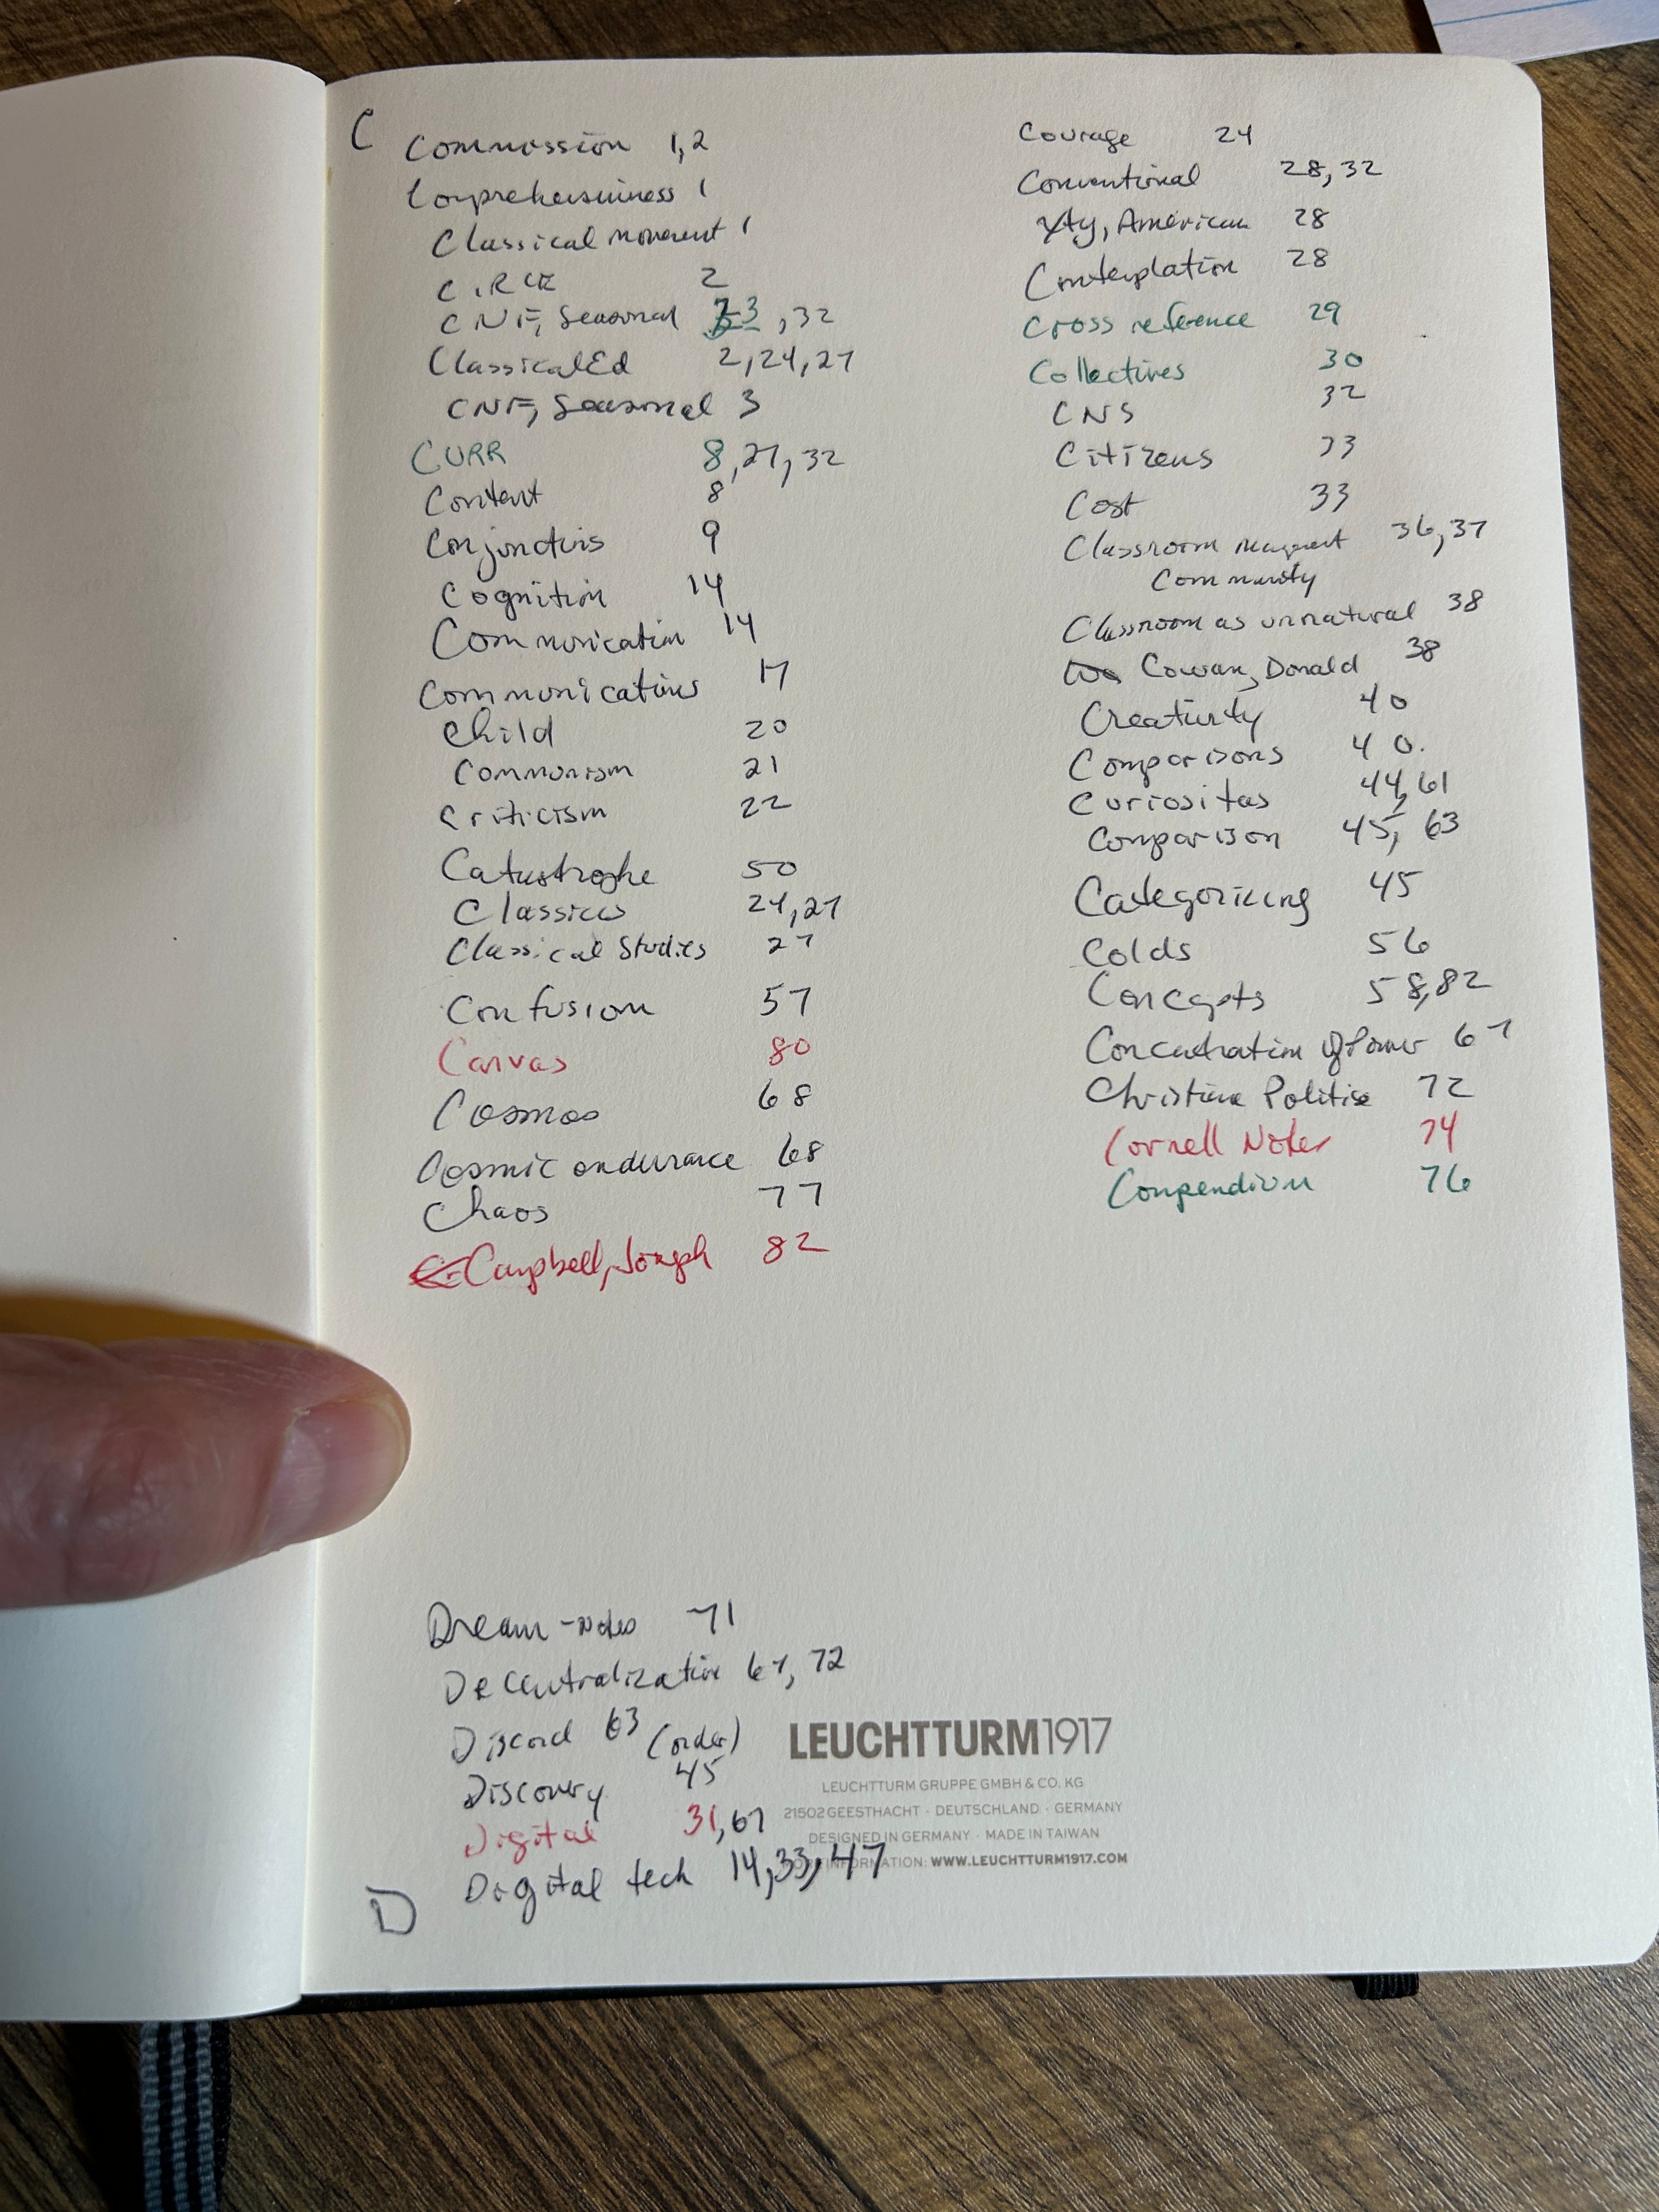 C
Commission 1,2
Comprehensiveness 1
Classical movement 1
CiRCE 2
CNF, Seasonal 3, 32
Classical Ed 2, 24, 27
CNF, Seasonal 3
CURR 8, 27, 32
Content 8
Conjunctions 9
Cognition 14
Communication 14
Communications 17
Child 20
Communism 21
Criticism 22
Catastrophe 50
Classics 24, 27
Classical Studies 27
Confusion 57
Canvas 80
Cosmos 68
Cosmic endurance 68
Chaos 77
Campbell, Joseph 82
Courage 24
Conventional 28, 32
Xty, American 28
Contemplation 28
Cross reference 29
Collectives 30
CNS 32
Citizens 33
Cost 33
Classroom 36, 37
Community
Classroom as unnatural 38
Cowan, Donald 38
Creativity 40
Comparisons 40.
Curiositas 44, 61
Comparison 45, 63
Categorizing 45
Colds 56
Concepts 58, 82
Concentration of Power 67
Christian 72
Cornell Notes 74
Compendium 76
Dream-Notes 71
Decentralization 67, 72
Discord 63 (order)
Discovery 45
Digital 31, 67
Digital tech 14, 33, 47
D
LEUCHTTURM1917
LEUCHTTURM GRUPPE GMBH & CO. KG
21502 GEESTHACHT · DEUTSCHLAND · GERMANY
DESIGNED IN GERMANY · MADE IN TAIWAN
INFORMATION: WWW.LEUCHTTURM1917.COM